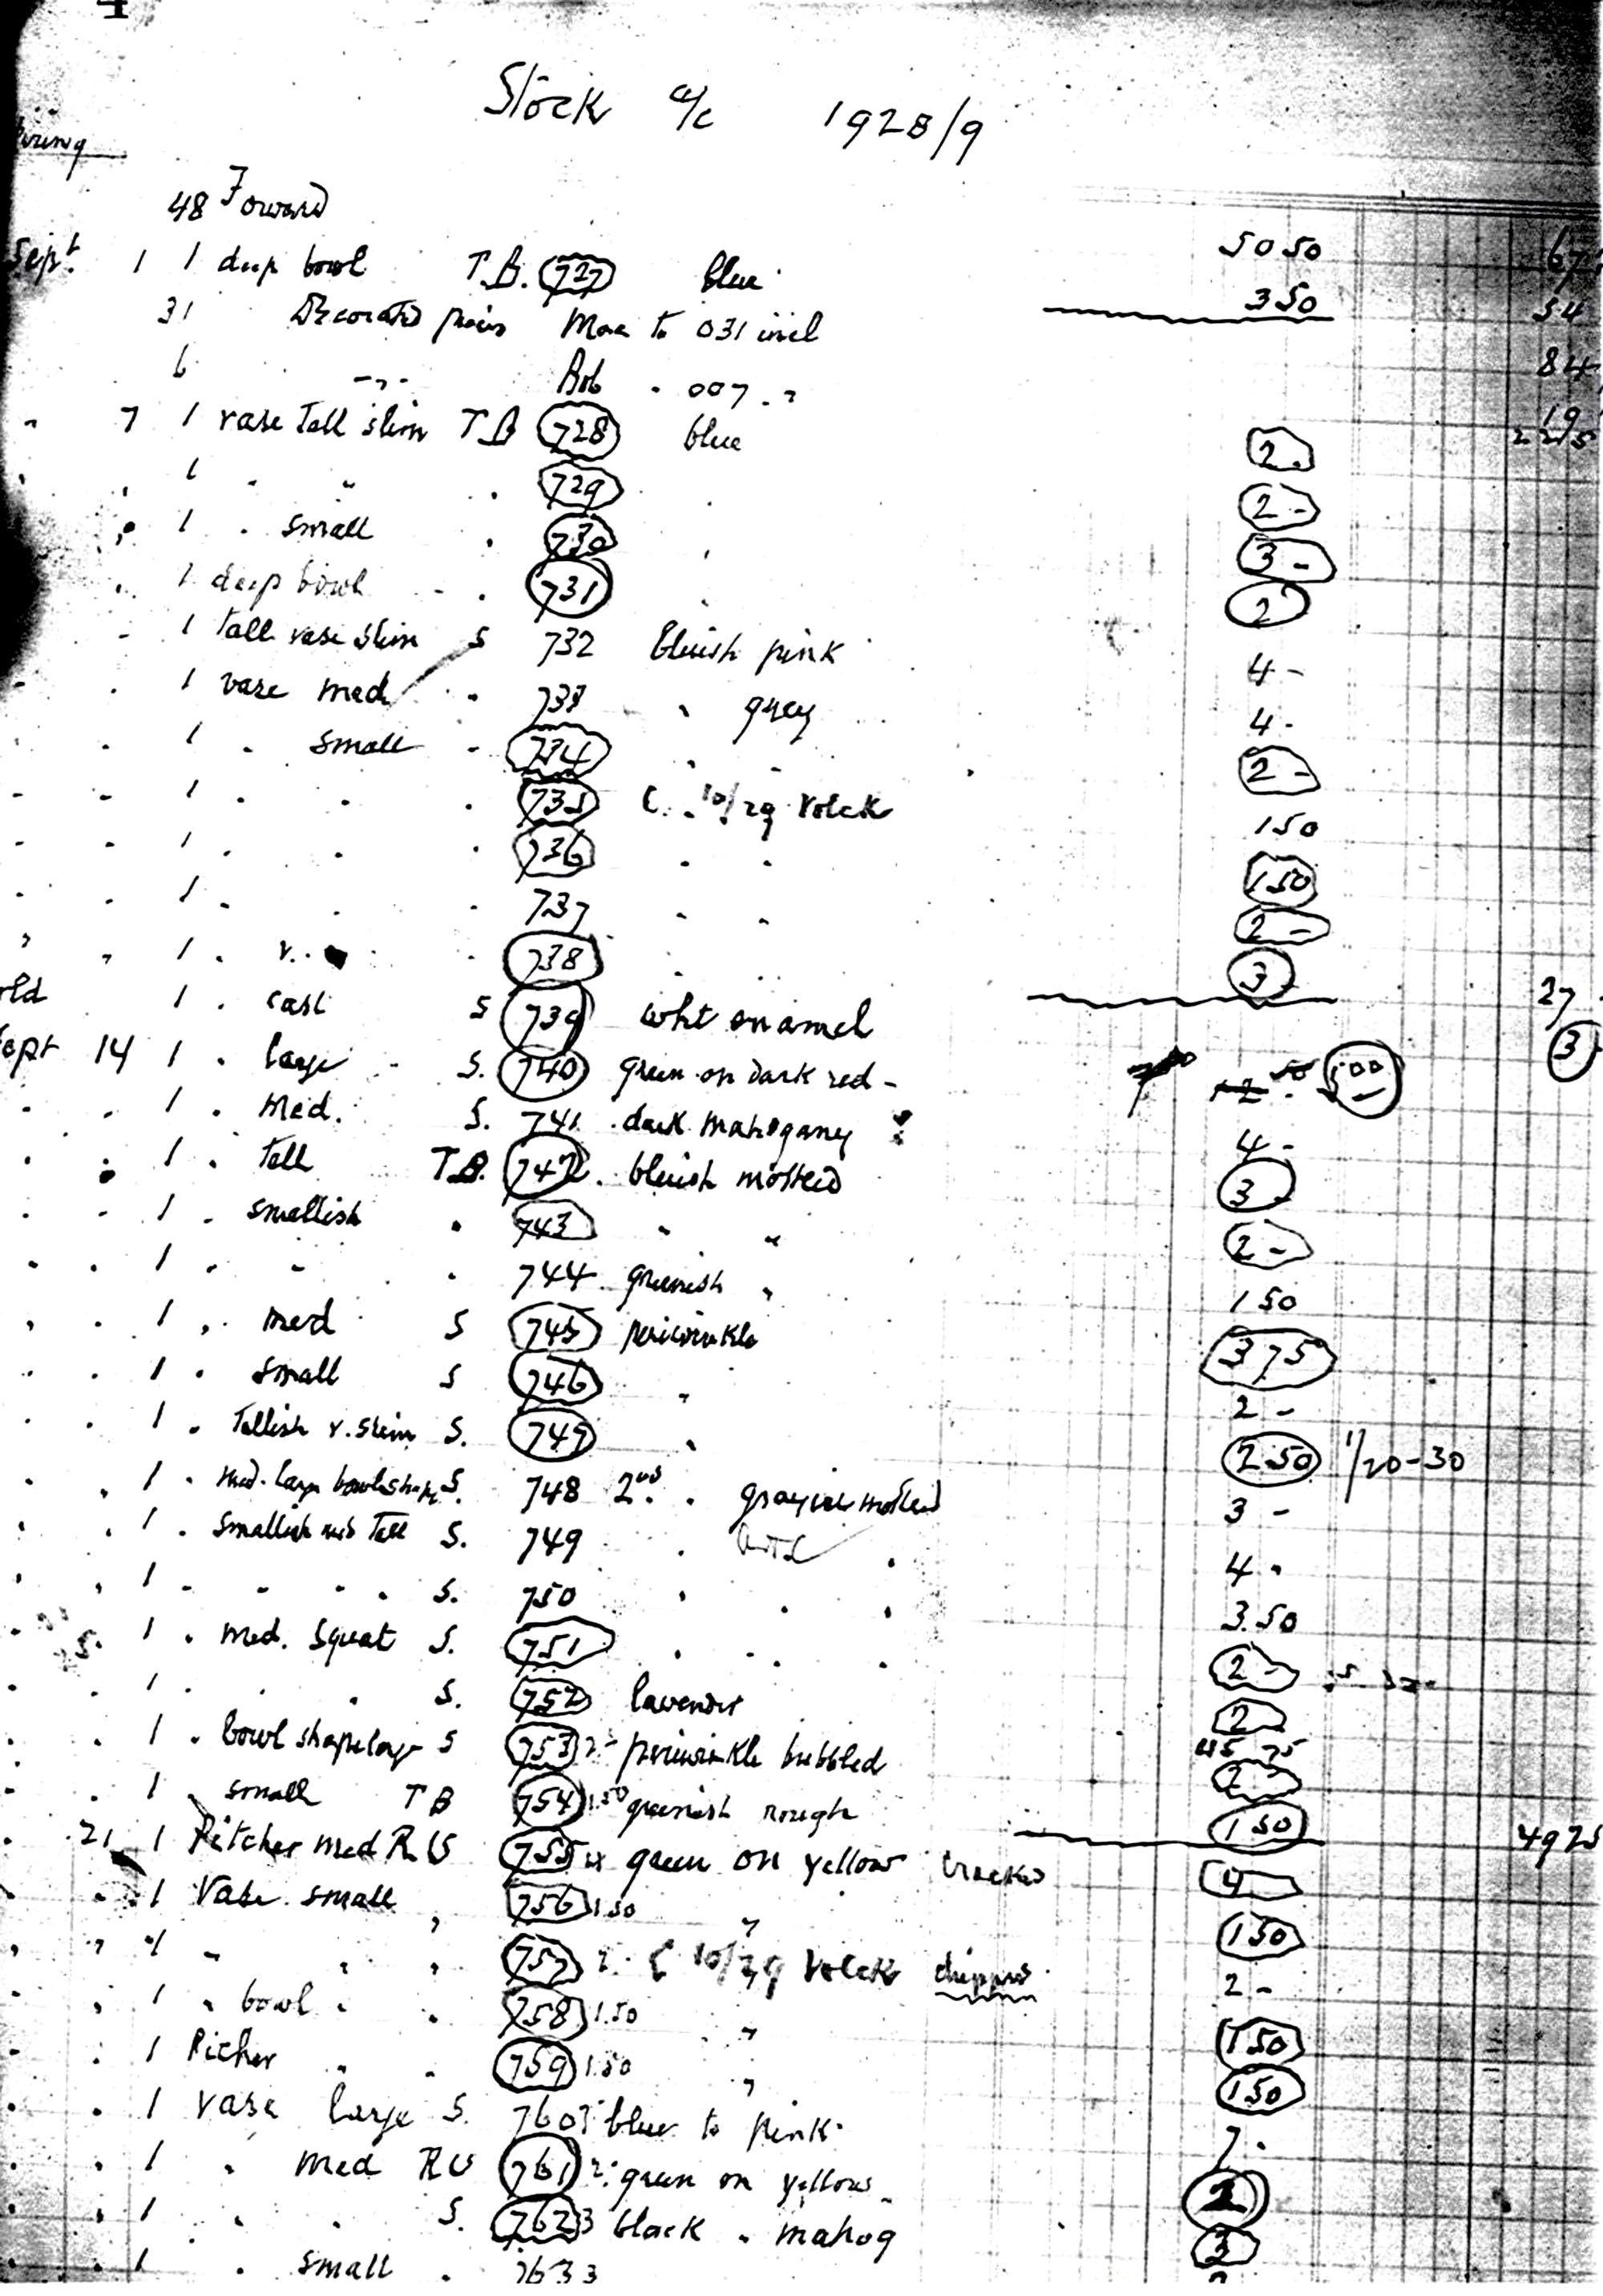 4
Stock a/c 1928/9
48 Forward
5050 67
Sept. 1 1 deep bowl T.B. 727 blue
350 54
31 Decorated Mara to 031 incl
84
6 -,,- Bob . 007 . "
19
7 1 vase Tall slim T B 728 blue 2.
225
1 " " . 729 . 2 -
1 . small . 730 . 3 -
1 deep bowl - . 731 . 2
1 Tall vase slim S 732 bluish pink 4 -
1 vase med . 733 " grey 4 -
1 . small - 734 . . 2 -
1 . . . 735 C. . 10/29 Volck 150
1 . . . 736 . . 150
1 . . . 737 . . 2 -
1 . v. . . 738 . . 3
1 . cast S 739 wht enamel 27
Sept 14 1 . large S. 740 green on dark red - 500 3
1 . Med. S. 741 . dark mahogany 4 -
1 . Tall T.B. 742 . bluish mottled 3 -
1 . smallish . 743 " " 2 -
1 . - . 744 greenish " 150
1 . med S 745 periwinkle 375
1 . small S 746 " 2 -
1 . Tallish v. slim S. 747 " 2.50 1/20-30
1 . Med. large bowl shape S. 748 mottled 3 -
1 . Smallish Tall S. 749 . . 4 -
1 . - . . S. 750 . . . 3.50
1 . med. Squat S. 751 . . . 2 -
1 . . . S. 752 lavender 2
45 75
1 . bowl shape large S 753 periwinkle bubbled 2 -
1 small T B 754 1.50 greenish rough 150
4975
21 1 Pitcher med R U 755 green on yellow cracked 4
1 Vase small " 756 1.50 " 150
1 - . . 757 2. C 10/29 Volck chipped 2 -
1 " bowl . . 758 1.50 . " 150
1 Picher . . 759 1.50 " 150
1 Vase large S. 760 7 blue to pink. 7 -
1 . med R U 761 2. green on yellow 2
1 . . S. 762 3 black . mahog 3
1 . small . 763 3